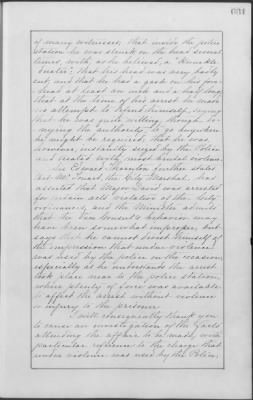 of many witnesses, that inside the police
station he was struck on the head several
times, with, as he believed, a "knuckle
duster"; that his head was very badly
cut, and that he has a gash on his fore-
head at least an inch and a half long;
that at the time of his arrest he made
no attempt to defend himself, saying
that he was quite willing, though
denying the authority, to go anywhere
he might be required, that he was,
however, instantly seized by the Police
and treated with most brutal violence.
Sir Edward Thornton further states
that the City Marshal, has
asserted that Major was arrested
for certain acts violative of the City
ordinances, and the Minister admits
that the Vice Consul's behavior may
have been somewhat improper, but
says that he cannot divest himself of
the impression that undue violence
was used by the police on the occasion,
especially as he understands the arrest
took place near to the police station,
where plenty of force was available
to effect the arrest without violence
or injury to the prisoner.
I will consequently thank you
to cause an investigation of the facts
attending the affair to be made, with
particular reference to the charge that
undue violence was used by the Police.